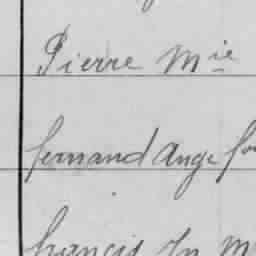 Pierre Mie
fernand Ange
francis Jn M